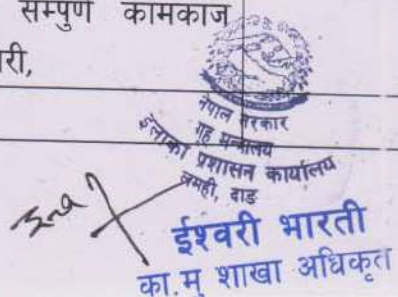 सम्पुर्ण कामकाज
री,
नेपाल सरकार
गृह मन्त्रालय
इलाका प्रशासन कार्यालय
लमही, दाङ
ईश्वरी भारती
का.मु शाखा अधिकृत